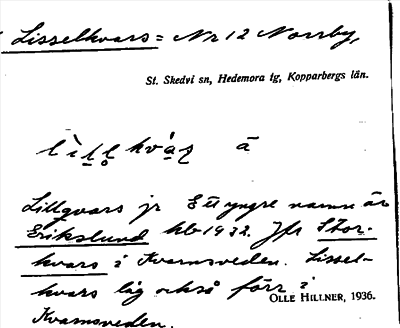 Lisselkvars = Nr 12 Norrby,
St. Skedvi sn, Hedemora tg, Kopparbergs län.
ā
Lillqvars jr Ett yngre namn är
Erikslund hb 1932. Jfr Stor-
kvars i Kvarnsveden. Lissel-
kvars låg också förr i
OLLE HILLNER, 1936.
Kvarnsveden.